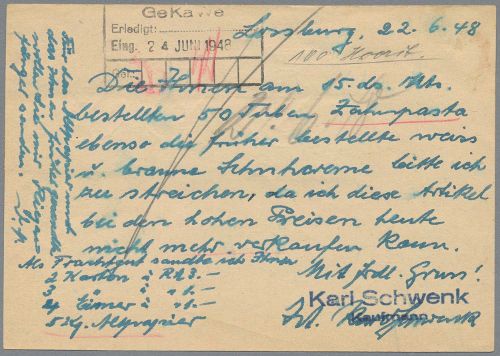 GeKaWe
Erledigt:
Eing. 24 JUNI 1948
Lorsburg, 22.6.48
Die Ihnen am 15. ds. Mts.
bestellten 50 Tuben Zahnpasta
ebenso die früher bestellte weiss
u. braune Schuhcreme bitte ich
zu streichen, da ich diese Artikel
bei den hohen Preisen heute
nicht mehr verkaufen kann.
Mit frdl. Gruss!
Karl Schwenk
Kaufmann
Als Frachtgut sandte ich Ihnen
2 Karton à R 3.-
3 " à " 1.-
4 Eimer à " 1.-
5 Kg. Altpapier
Für das Altpapier und
das Ihnen früher gesandte
wollen Sie mir